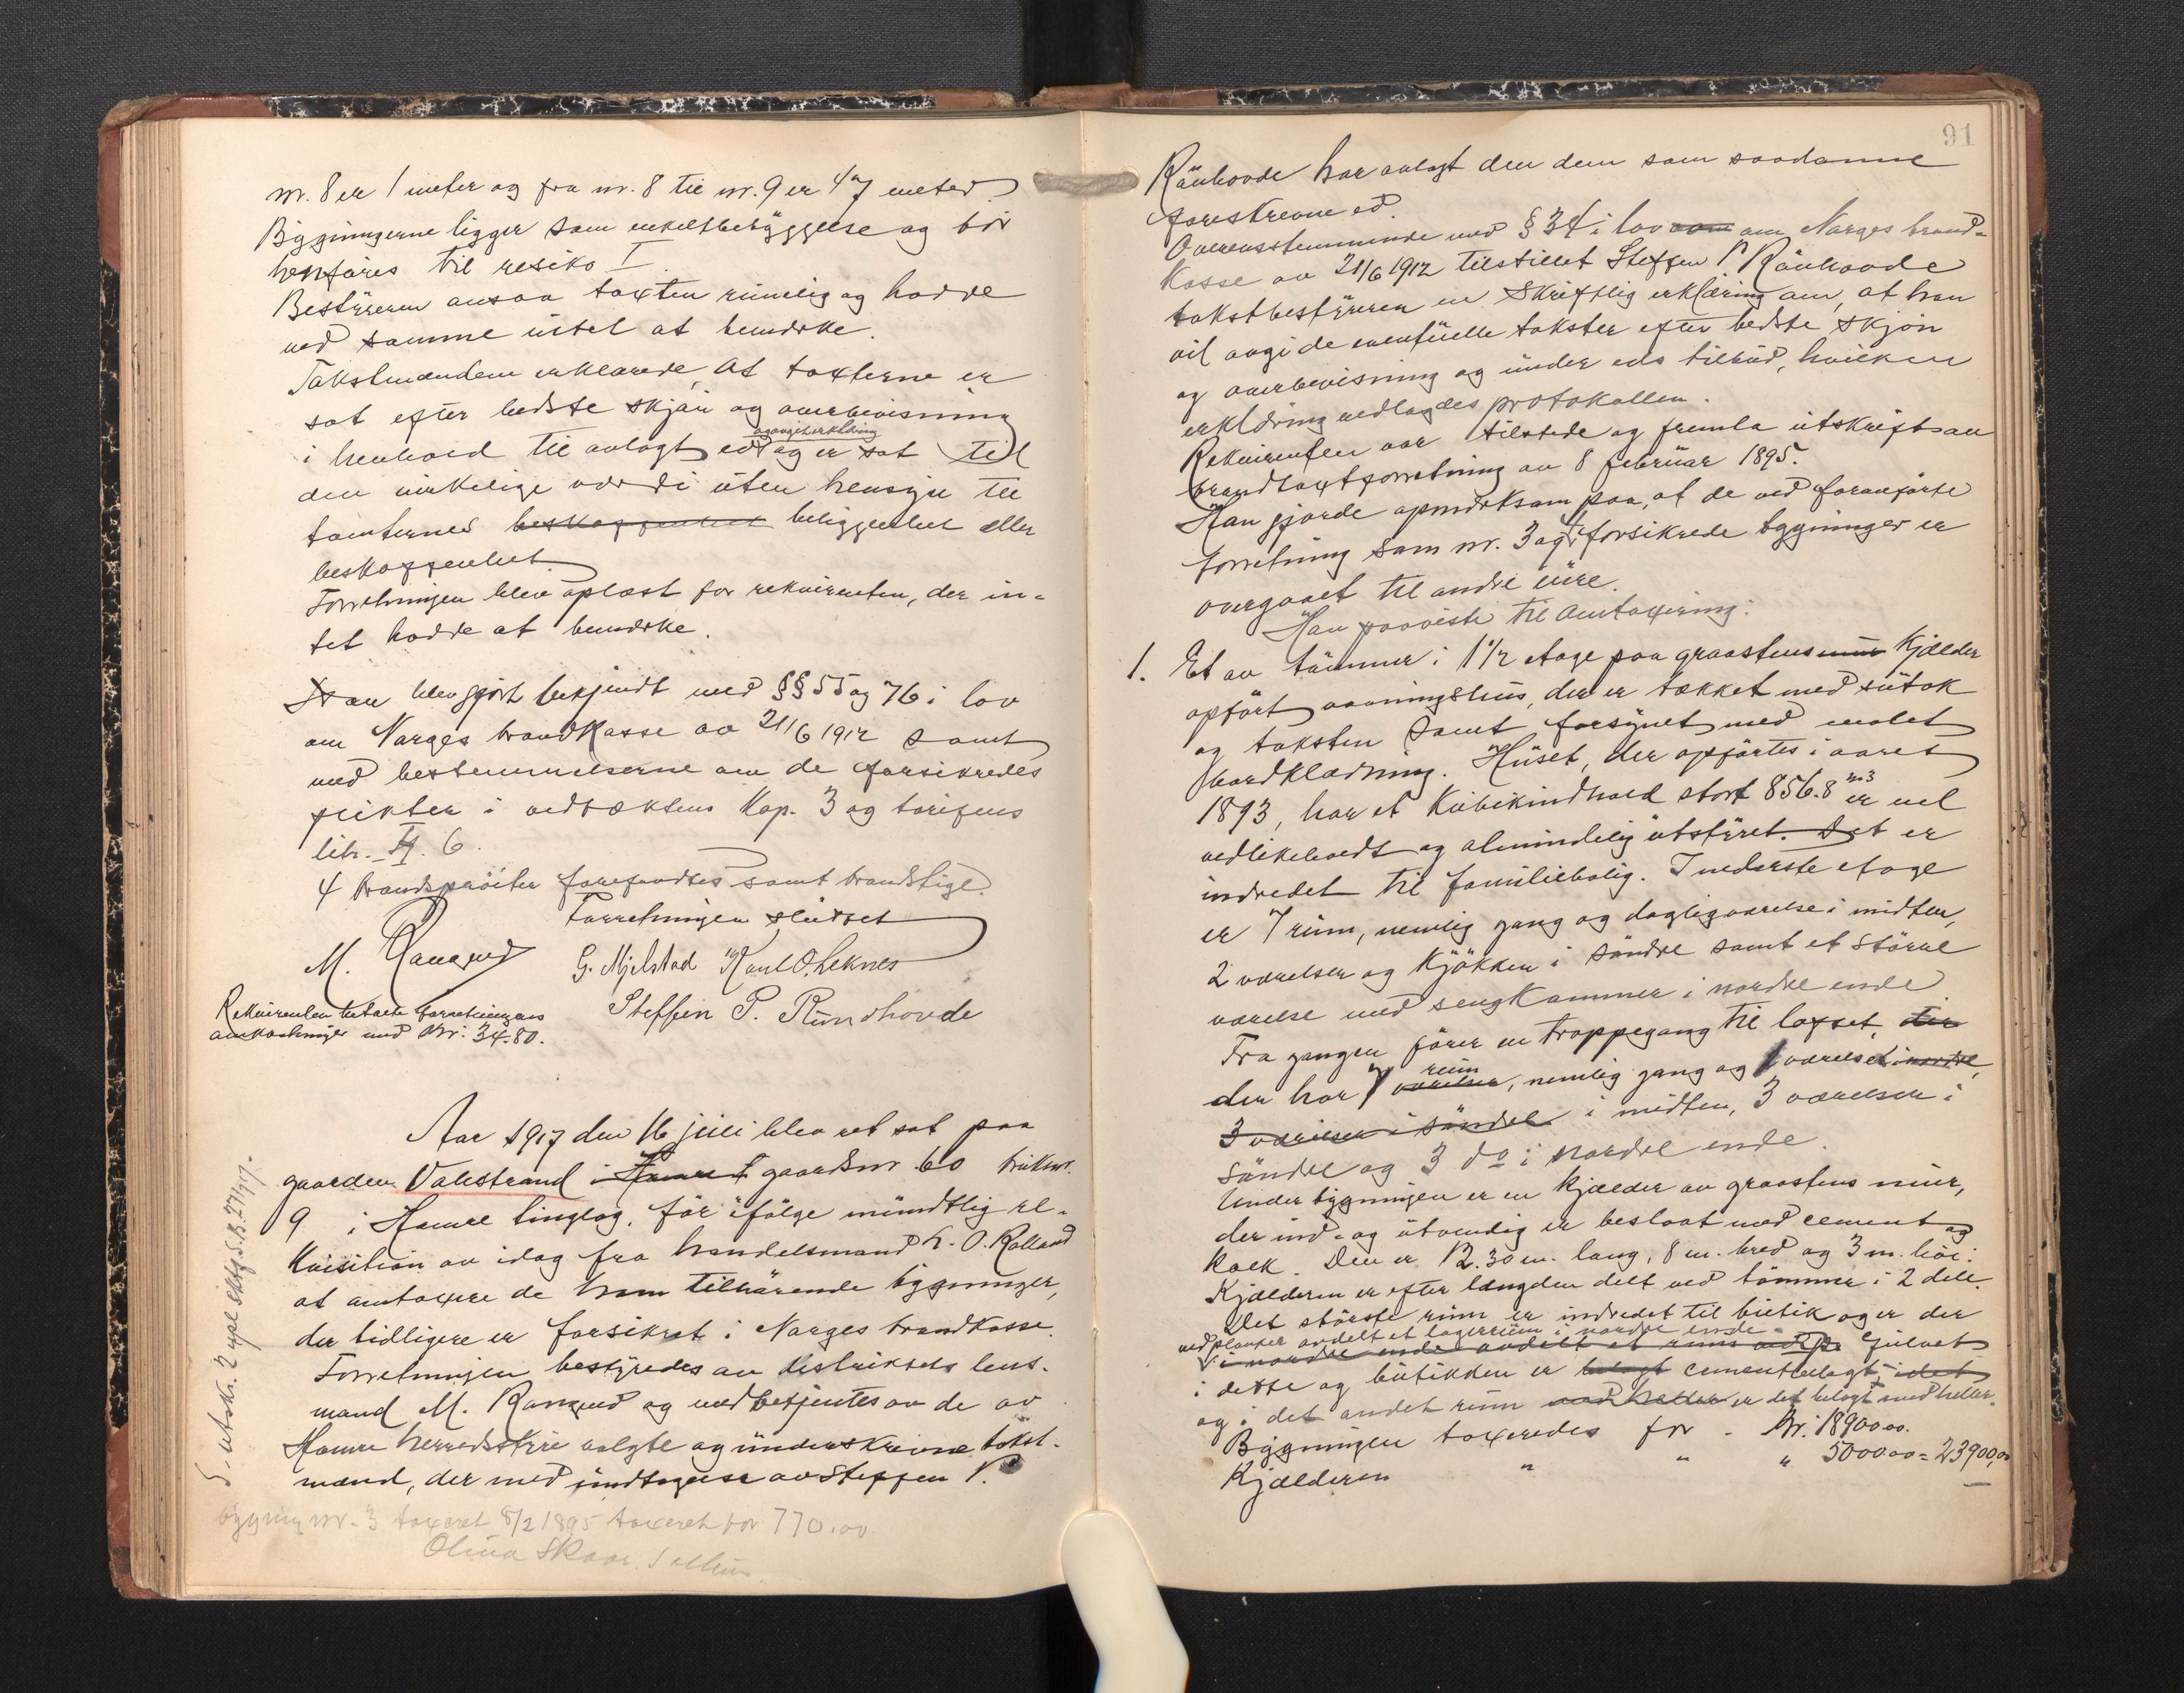 nr. 8 er 1 meter og fra nr. 8 til nr. 9 er 47 meter.
Bygningerne ligger som enkeltbebyggelse og bør
henføres til resiko I
Bestyreren ansaa taxten rimelig og havde
ved samme intet at bemerke.
Takstmændene erklærede, at taxterne er
sat efter bedste skjøn og overbevisning
i henhold til avlagt ed og er sat til
den virkelige værdi uten hensyn til
tomternes beskaffenhet beliggenhet eller
beskaffenhet.
Forretningen blev oplæst for rekvirenten, der in-
tet havde at bemerke.
Han blev gjort bekjendt med §§ 55 og 76 i lov
om Norges brandkasse av 21/6 1912 samt
med bestemmelserne om de forsikredes
plikter i vedtæktens Kap. 3 og tarifens
litr. H. 6.
4 brandsprøiter forefandtes samt brandstige.
Forretningen sluttet
M. Ramqvist G. Mjelstad Karl O. Leknes
Steffen P. Rundhovde
Rekvirenten betalte forretningens
omkostninger med Kr: 34.80.
Aar 1917 den 16 juli blev ret sat paa
gaarden Valestrand i Hamre gaardsnr 60 bruksnr.
9 i Hamre tinglag, for ifølge mundtlig re-
kvisition av idag fra handelsmand L. O. Rolland
at omtaxere de ham tilhørende bygninger,
der tidligere er forsikret i Norges brandkasse.
Forretningen bestyredes av distriktets lens-
mand M. Ramqvist og medbetjentes av de av
Hamre herredsstyre valgte og underskrevne takst-
mænd, der med undtagelse av Steffen P.
bygning nr. 3 taxeret 8/2 1895 taxeret for 770.00.
Olina Skaar
91
Rünhovde har avlagt den dem som saadanne
foreskrevne ed.
Overensstemmende med § 34 i lov om Norges brand-
kasse av 21/6 1912 tilstillet Steffen P Rünhovde
takstbestyreren en skriftlig erklæring om, at han
vil avgi de eventuelle takster efter bedste skjøn
og overbevisning og under eds tilbud, hvilken
erklæring vedlagdes protokollen.
Rekvirenten var tilstede og fremla utskrift av
brandtaxtforretning av 8 februar 1895.
Han gjorde opmerksom paa, at de ved foranførte
forretning som nr. 3 og 4 forsikrede bygninger er
overgaaet til andre eiere.
Han paaviste til omtaxering:
1. Et av tømmer i 1 1/2 etage paa graastens mur kjælder
opført vaaningshus, der er tækket med sutak
og taksten samt forsynet med malet
bordklædning. Huset, der opførtes i aaret
1893, har et kubikindhold stort 856.8 m3 er vel
vedlikeholdt og almindelig utstyret. Det er
indredet til familiebolig. I nederste etage
er 7 rum, nemlig gang og dagligværelse i midten,
2 værelser og kjøkken i søndre samt et større
værelse med sengkammer i nordre ende.
Fra gangen fører en trappegang til loftet, der
der har værelser rum, nemlig gang og 1 værelse i nordre,
3 værelser i søndre i midten, 3 værelser i
søndre og 3 do i nordre ende.
Under bygningen er en kjælder av graastens mur,
der ind- og utvendig er beslaat med cement og
kalk. Den er 12.30 m. lang, 8 m. bred og 3 m. høi.
Kjælderen er efter længden delt ved tømmer i 2 dele.
Det største rum er indredet til butik og er der
ved planker avdelt et lagerrum i nordre ende
i nordre ende avdelt et rum ved p. Gulvet
i dette og butikken er belagt cementbelagt, idet
og i det andet rum ved heller er det belagt med heller.
Bygningen taxeredes for - Kr: 18900.00.
Kjælderen " " " 5000.00 = 23900,00